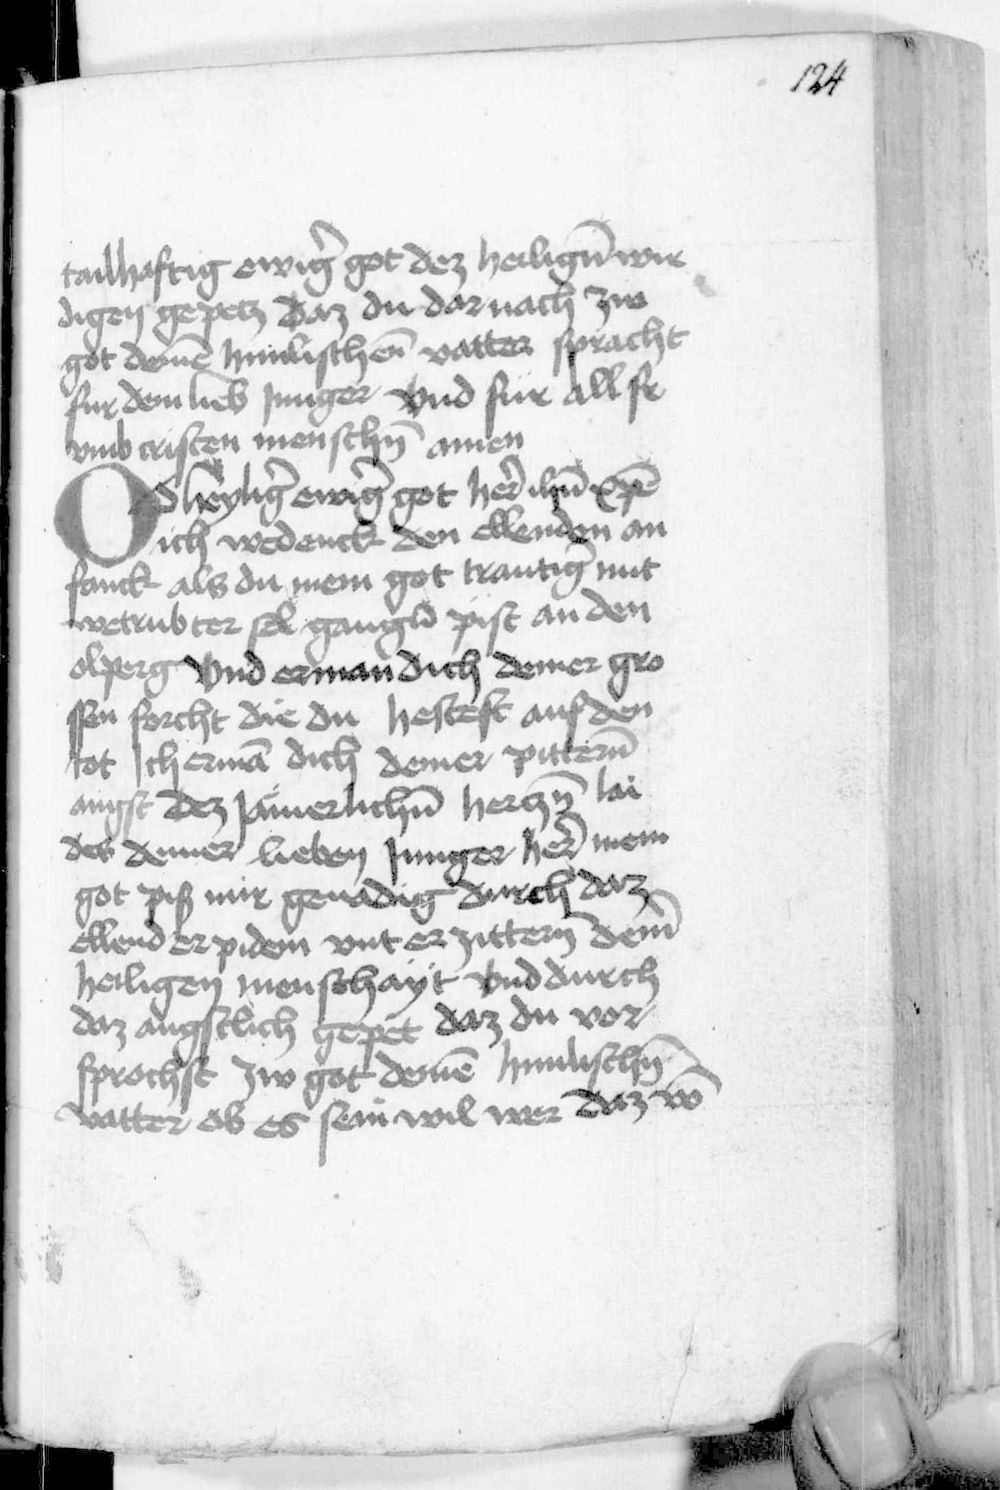 124
tailhaftig ewiḡ got dez heilign̄ wir
digen gepetz Daz du dar nach zw
got deinē himlischen̄ vatter spracht
fur dein lieb Junger Vnd fur all fr
vmb cristen menschn̄ amen
O heyliḡ ewiḡ got her̄ ihū xp̄e
ich wedenck den ellenden an
fanck als du mein got trautiḡ mit
wetrubter sel gangn̄ pist an den
olperg Vnd erman dich deiner gro
ssen forcht die du hestest auf den
tot Ich ermā dich deiner pittern̄
angst Dez Jamerlichn̄ hertzn̄ lai
des deiner lieben Junger her̄ mein
got piß mir genadig durch daz
ellend erpidem vnt erzittern dein̄
heiligen menschayt Vnd durch
daz angstlich gepet daz du vor
sprochst zw got deinē himlischn̄
vatter ob es sein wil wer Daz